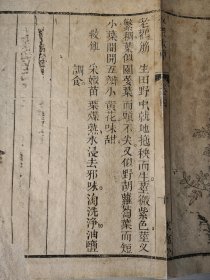 老鸛筋 生田野中就地拖秧而生莖微紫色莖叉
繁稠葉似園荽葉而頭不尖又似野胡蘿蔔葉而短
小莖間開五瓣小黃花味甜
救飢 采嫩苗葉煠熟水浸去邪味淘洗淨油鹽
調食